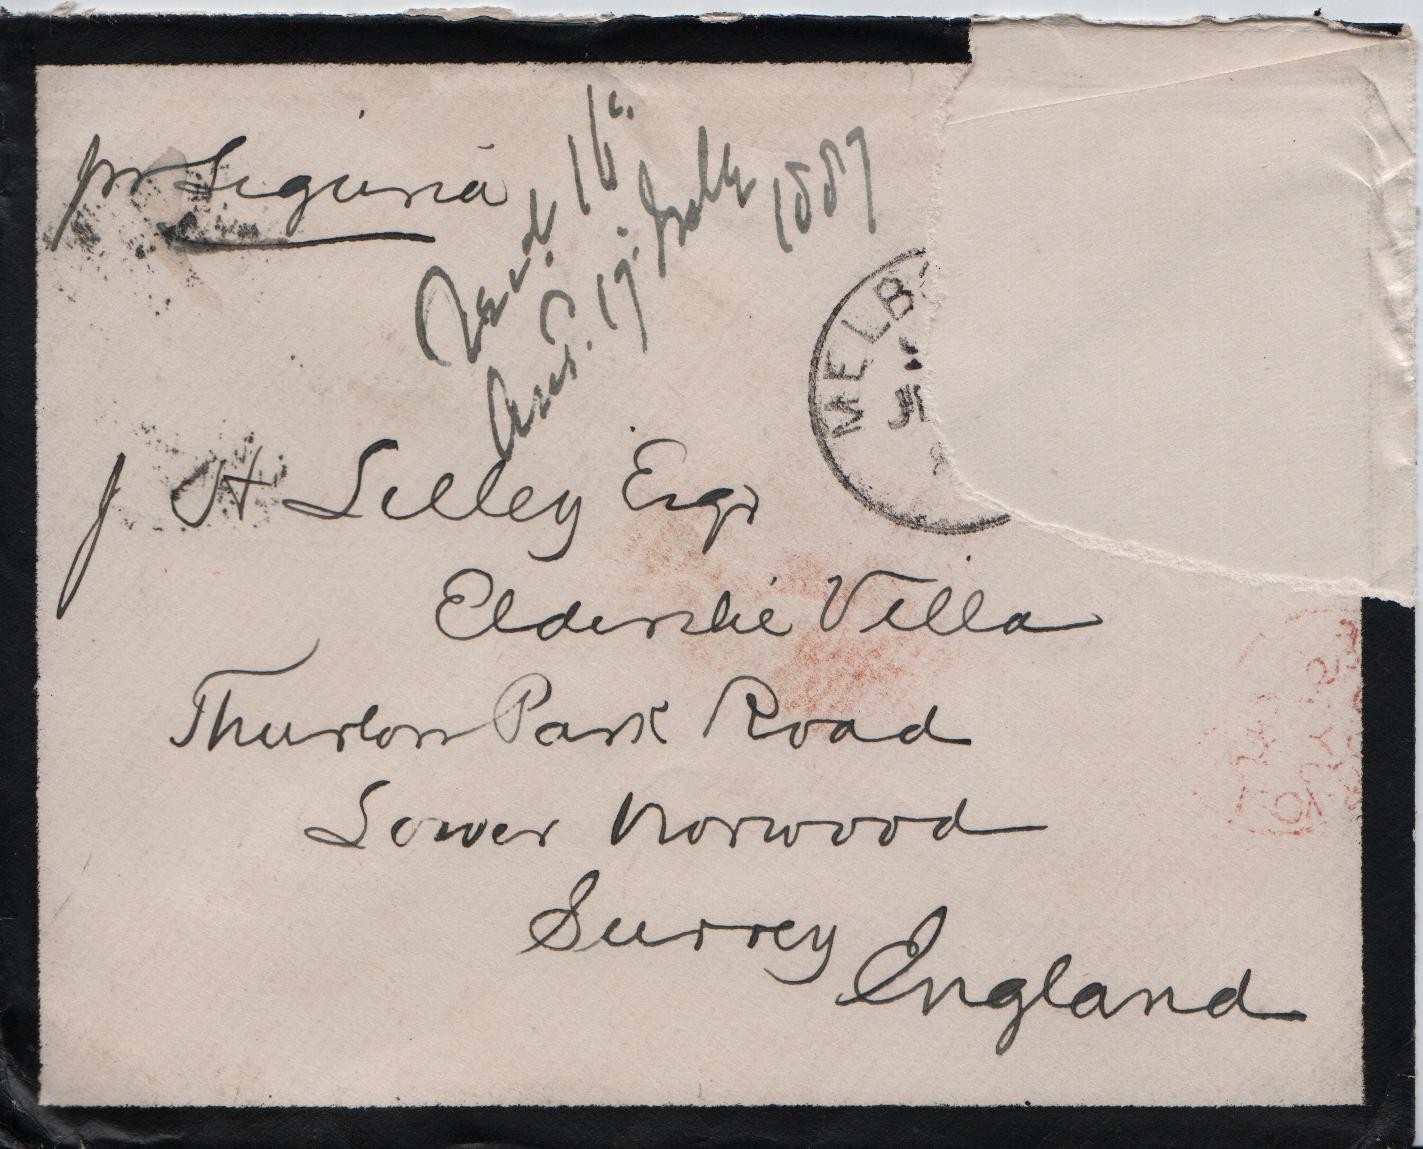 pr Liguria
Recd. 16.
Ans. 17. July 1887
MELBO
J H Lilley Esqr
Elderslie Villa
Thurlow Park Road
Lower Norwood
Surrey England